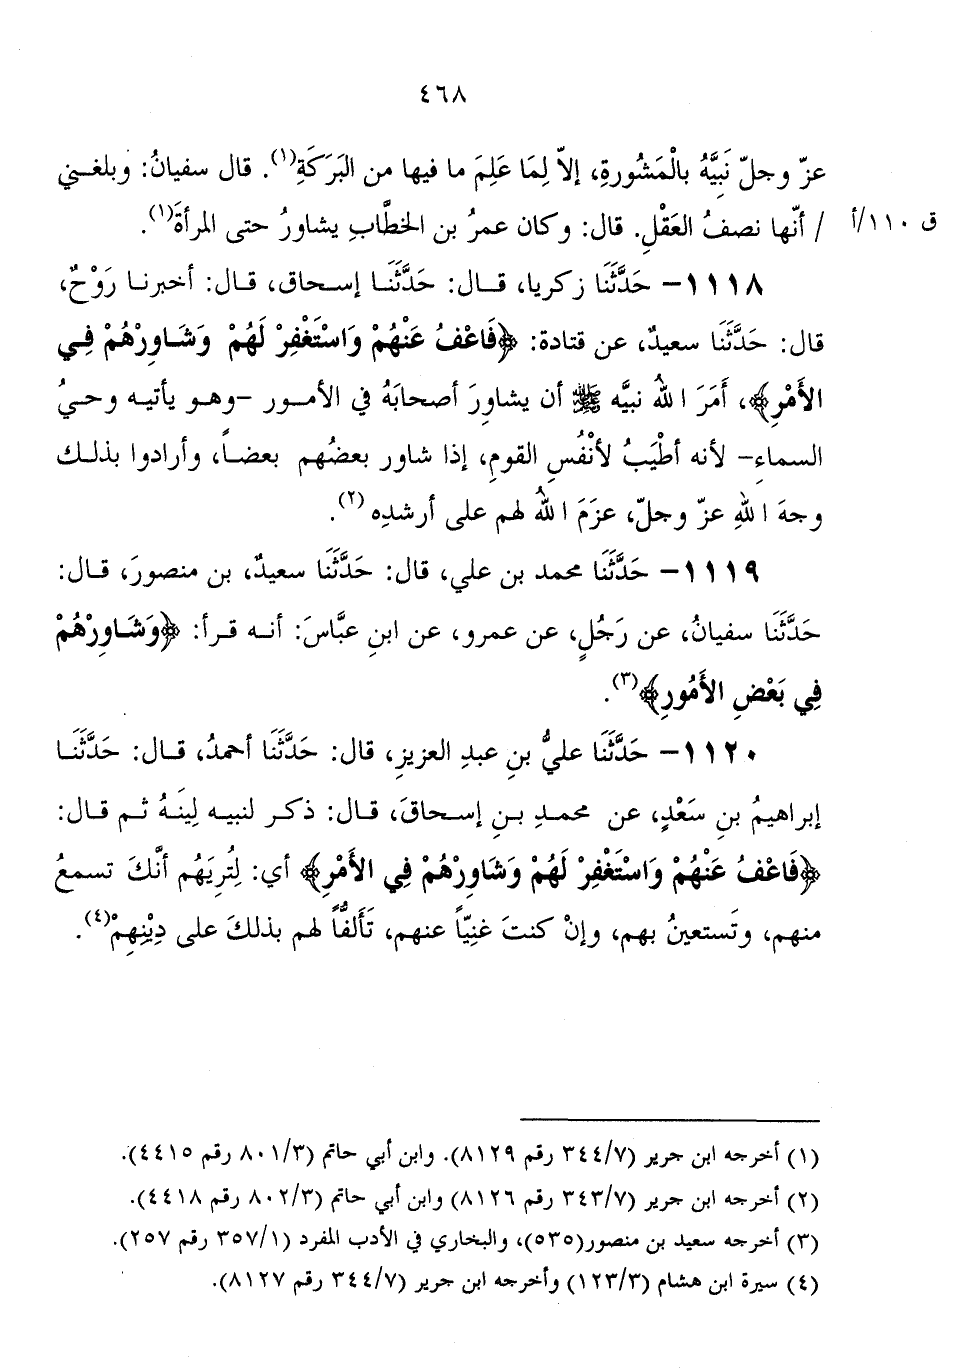 ٤٦٨
عزّ وجلّ نَبِيَّهُ بالْمَشُورةِ، إلاّ لِمَا عَلِمَ ما فيها من البَرَكَةِ(١). قال سفيانُ: وبلغـني
ق ١١٠/أ / أنّها نصفُ العَقْلِ. قال: وكان عمرُ بن الخطَّابِ يشاورُ حتى المرأةَ(١).
١١١٨- حَدَّثَنَا زكريا، قـال: حَدَّثَنَـا إسـحاق، قـال: أخبرنـا رَوْحٌ،
قال: حَدَّثَنَا سعيدٌ، عن قتادة: ﴿فَاعْفُ عَنْهُمْ وَاسْتَغْفِرْ لَهُمْ وَشَـاوِرْهُمْ فِـي
الأَمْرِ﴾، أَمَرَ اللهُ نبيَّه ﷺ أن يشاورَ أصحابَهُ في الأمـور -وهـو يأتيـه وحـيُ
السماءِ- لأنه أطْيَبُ لأنْفُسِ القومِ، إذا شاور بعضُهم بعضـاً، وأرادوا بذلـك
وجهَ اللهِ عزّ وجلّ، عزَمَ اللهُ لهم على أرشدِه(٢).
١١١٩- حَدَّثَنَا محمد بن علي، قال: حَدَّثَنَا سعيدٌ، بن منصورَ، قـال:
حَدَّثَنَا سفيانُ، عن رَجُلٍ، عن عمرو، عن ابنِ عبَّاسَ: أنـه قـرأ: ﴿وَشَـاوِرْهُمْ
فِي بَعْضِ الأَمُورِ﴾(٣).
١١٢٠- حَدَّثَنَا عليُّ بنِ عبدِ العزيزِ، قال: حَدَّثَنَا أحمدُ، قـال: حَدَّثَنَـا
إبراهيمُ بنِ سَعْدٍ، عن محمـدِ بـنِ إسـحاقَ، قـال: ذكـر لنبيـه لِينَـهُ ثـم قـال:
﴿فَاعْفُ عَنْهُمْ وَاسْتَغْفِرْ لَهُمْ وَشَاوِرْهُمْ فِي الأَمْرِ﴾ أي: لِتُرِيَهُم أنَّكَ تسمعُ
منهم، وتَستعينُ بهم، وإنْ كنتَ غنِيّاً عنهم، تَأَلفُّاً لهم بذلكَ على دِيْنِهِمْ(٤).
(١) أخرجه ابن جرير (٣٤٤/٧ رقم ٨١٢٩). وابن أبي حاتم (٨٠١/٣ رقم ٤٤١٥).
(٢) أخرجه ابن جرير (٣٤٣/٧ رقم ٨١٢٦) وابن أبي حاتم (٨٠٢/٣ رقم ٤٤١٨).
(٣) أخرجه سعيد بن منصور(٥٣٥)، والبخاري في الأدب المفرد (٣٥٧/١ رقم ٢٥٧).
(٤) سيرة ابن هشام (١٢٣/٣) وأخرجه ابن جرير (٣٤٤/٧ رقم ٨١٢٧).